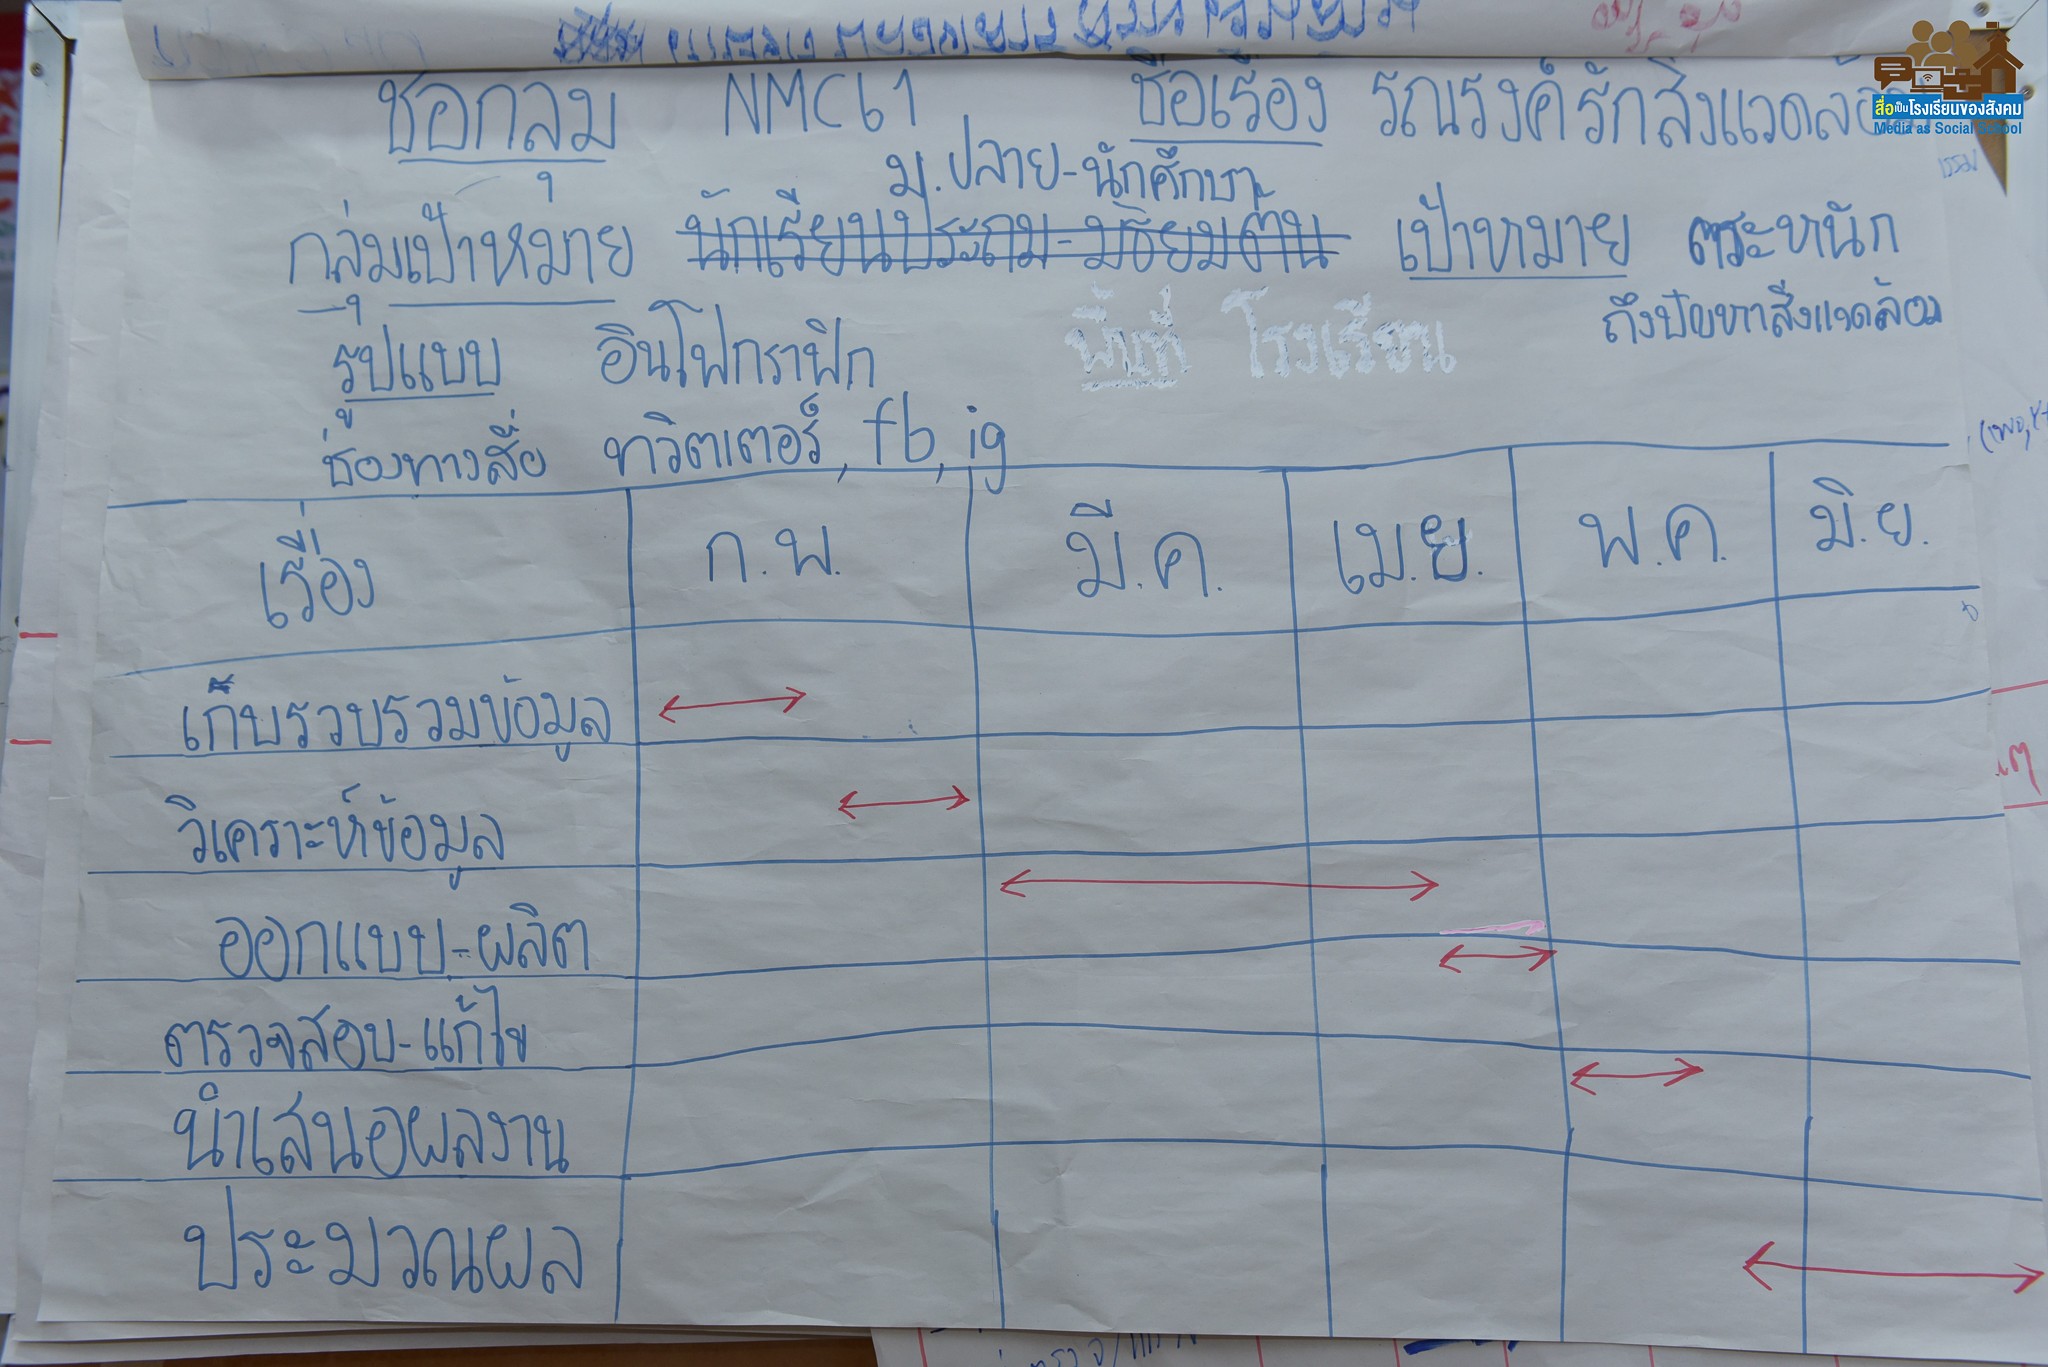 ชื่อกลุ่ม NMC61 ชื่อเรื่อง รณรงค์รักสิ่งแวดล้อม
ม.ปลาย-นักศึกษา
กลุ่มเป้าหมาย นักเรียนประถม-มัธยมต้น เป้าหมาย ตระหนัก
ถึงปัญหาสิ่งแวดล้อม
รูปแบบ อินโฟกราฟิก พื้นที่ โรงเรียน
ช่องทางสื่อ ทวิตเตอร์, fb, ig
เรื่อง ก.พ. มี.ค. เม.ย. พ.ค. มิ.ย.
เก็บรวบรวมข้อมูล
วิเคราะห์ข้อมูล
ออกแบบ-ผลิต
ตรวจสอบ-แก้ไข
นำเสนอผลงาน
ประมวณผล
สื่อเป็นโรงเรียนของสังคม
Media as Social School